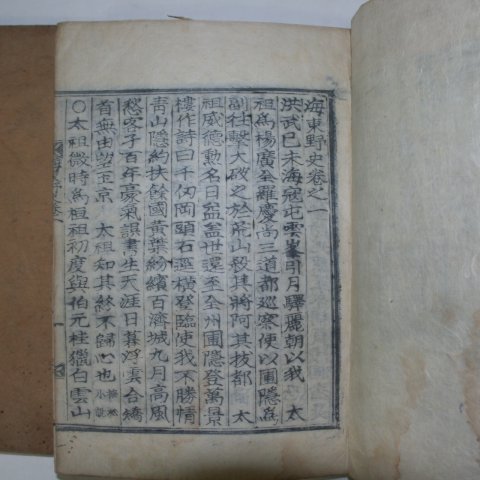 海東野史卷之一
洪武己未海寇屯雲峯引月驛麗朝以我 太
祖爲楊廣全羅慶尙三道都巡察使以圃隱爲
副往擊大破之於荒山殺其將阿其拔都 太
祖威德勲名日益盛世還至全州圃隱登萬景
樓作詩曰千仞岡頭石逕橫登臨使我不勝情
靑山隱約扶餘國黃葉紛繽百濟城九月高風
愁客子百年豪氣誤書生天涯日暮浮雲合矯
首無由望玉京 太祖知其終不歸心也
○太祖微時爲桓祖初度與伯元桂獵白雲山